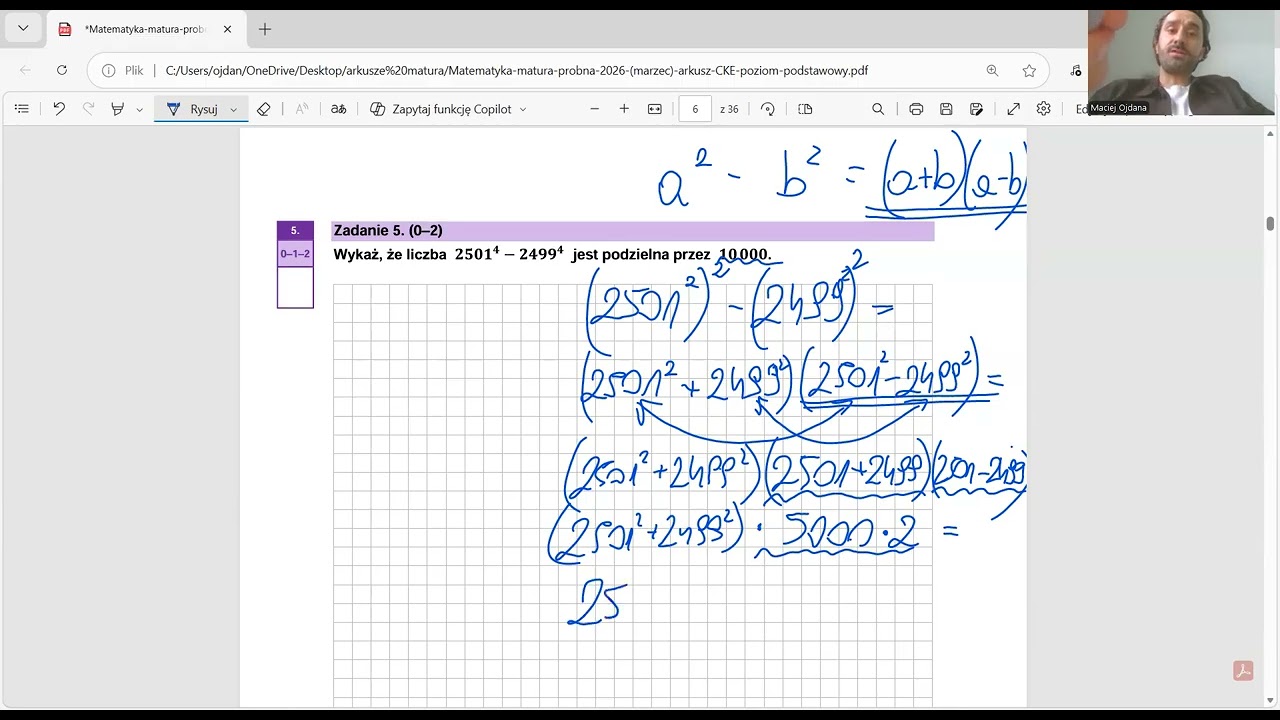 *Matematyka-matura-prob
Plik
C:/Users/ojdan/OneDrive/Desktop/arkusze%20matura/Matematyka-matura-probna-2026-(marzec)-arkusz-CKE-poziom-podstawowy.pdf
Maciej Ojdana
Rysuj
Zapytaj funkcję Copilot
6
z 36
a² - b² = (a+b)(a-b)
5.
Zadanie 5. (0–2)
0–1–2
Wykaż, że liczba 2501⁴ − 2499⁴ jest podzielna przez 10 000.
(2501²)² - (2499²)² =
(2501² + 2499²)(2501² - 2499²) =
(2501² + 2499²)(2501 + 2499)(2501 - 2499)
(2501² + 2499²) · 5000 · 2 =
25